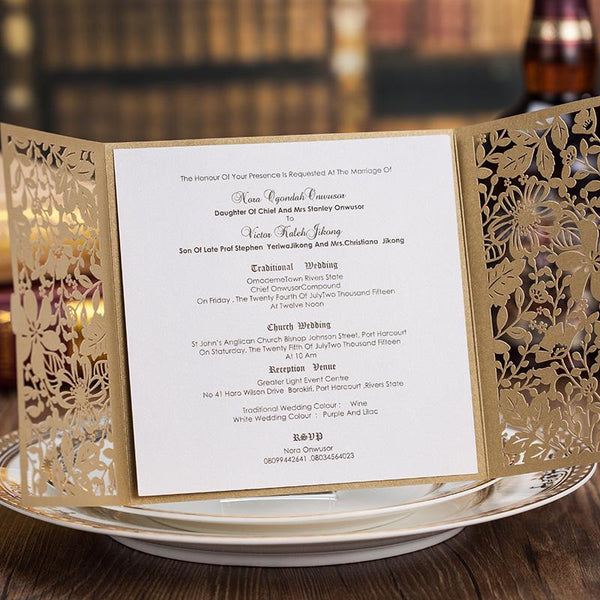 The Honour Of Your Presence Is Requested At The Marriage Of
Nora Ogondah Onwusor
Daughter Of Chief And Mrs Stanley Onwusor
To
Victor Kaleh Jikong
Son Of Late Prof Stephen YeriwaJikong And Mrs.Christiana Jikong
Traditional Wedding
OmodemeTown Rivers State
Chief OnwusorCompound
On Friday . The Twenty Fourth Of JulyTwo Thousand Fifteen
At Twelve Noon
Church Wedding
St John's Anglican Church Bishop Johnson Street, Port Harcourt
On Saturday, The Twenty Fifth Of JulyTwo Thousand Fifteen
At 10 Am
Reception Venue
Greater Light Event Centre
No 41 Haro Wilson Drive, Worolick, Borokiri, Port Harcourt ,Rivers State
Traditional Wedding Colour : Wine
White Wedding Colour : Purple And Lilac
RSVP
Nora Onwusor
08099442641 ,08034564023